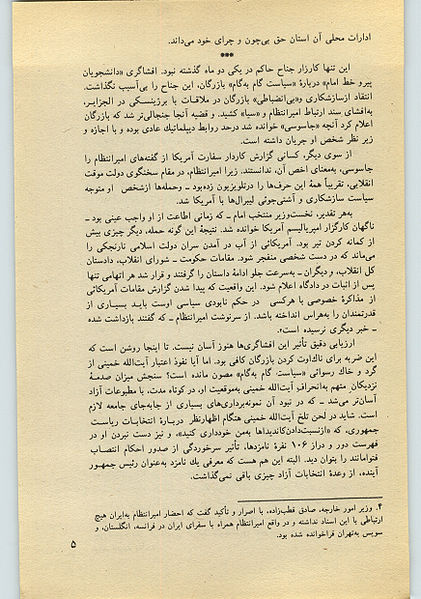 ادارات محلی آن استان حق بی‌چون و چرای خود می‌داند.
***
این تنها کارزار جناح حاکم در یکی دو ماه گذشته نبود. افشاگری «دانشجویان
پیرو خط امام» دربارهٔ «سیاست گام به‌گام» بازرگان، این جناح را بی‌آسیب نگذاشت.
انتقاد از سازشکاری و «بی‌انضباطی» بازرگان در ملاقات با برژینسکی در الجزایر،
به‌افشای سند ارتباط امیرانتظام و «سیا» کشید. و قضیه آنجا جنجالی‌تر شد که بازرگان
اعلام کرد آنچه «جاسوسی» خوانده شد درحد روابط دیپلماتیک عادی بوده و با اجازه و
زیر نظر شخص او جریان داشته است.
از سوی دیگر، کسانی گزارش کاردار سفارت آمریکا از گفته‌های امیرانتظام را
جاسوسی، به‌معنای اخص آن، ندانستند. زیرا امیرانتظام، در مقام سخنگوی دولت موقت
انقلابی، تقریباً همهٔ این حرف‌ها را درتلویزیون زده‌بود ـ وحمله‌ها ازشخص او متوجه
سیاست سازشکاری و آشتی‌جوئی لیبرال‌ها با آمریکا شد.
به‌هر تقدیر، نخست‌وزیر منتخب امام ـ که زمانی اطاعت از او واجب عینی بود ـ
ناگهان کارگزار امپریالیسم آمریکا خوانده شد. نتیجهٔ این گونه حمله، دیگر چیزی بیش
از کمانه کردن تیر بود. آمریکائی از آب در آمدن سران دولت اسلامی نارنجکی را
می‌ماند که در دست شخصی منفجر شود. مقامات حکومت ـ شورای انقلاب، دادستان
کل انقلاب، و دیگران ـ به‌سرعت جلو ادامهٔ داستان را گرفتند و قرار شد هر اتهامی تنها
پس از اثبات در دادگاه اعلام شود. این واقعیت که پیدا شدن گزارش مقامات آمریکائی
از مذاکرهٔ خصوصی با هرکسی در حکم نابودی سیاسی اوست باید بسیاری از
قدرتمندان را به‌هراس انداخته باشد. از سرنوشت امیرانتظام ـ که گفتند بازداشت شده
ـ خبر دیگری نرسیده است⁴.
ارزیابی دقیق تأثیر این افشاگری‌ها هنوز آسان نیست. تا اینجا روشن است که
این ضربه برای ناک‌اوت کردن بازرگان کافی بود. اما آیا نفوذ اعتبار آیت‌الله خمینی از
گرد و خاک رسوائی «سیاست گام به‌گام» مصون مانده است؟ سنجش میزان صدمهٔ
نزدیکان متهم به‌انحراف آیت‌الله خمینی به‌موقعیت او، در کوتاه مدت، با مطبوعات آزاد
آسان‌تر می‌شد ـ که در نبود آن نمونه‌برداری‌های بسیاری از جابه‌جای جامعه لازم
است. شاید در لحن تلخ آیت‌الله خمینی هنگام اظهارنظر دربارهٔ انتخابات ریاست
جمهوری، که «ازنسبت‌دادن‌کاندیداها به‌من خودداری کنید»، و نیز دست نبردن او در
فهرست دور و دراز ۱۰۶ نفرهٔ نامزدها، تأثیر سرخوردگی از صدور احکام انتصاب
فتوامانند را بتوان دید. البته این هم هست که معرفی یك نامزد به‌عنوان رئیس جمهور
آینده، از وعدهٔ انتخابات آزاد چیزی باقی نمی‌گذاشت.
۴. وزیر امور خارجه، صادق قطب‌زاده، با اصرار و تأکید گفت که احضار امیرانتظام به‌ایران هیچ
ارتباطی با این اسناد نداشته و در واقع امیرانتظام همراه با سفرای ایران در فرانسه، انگلستان، و
سویس به‌تهران فراخوانده شده بود.
۵